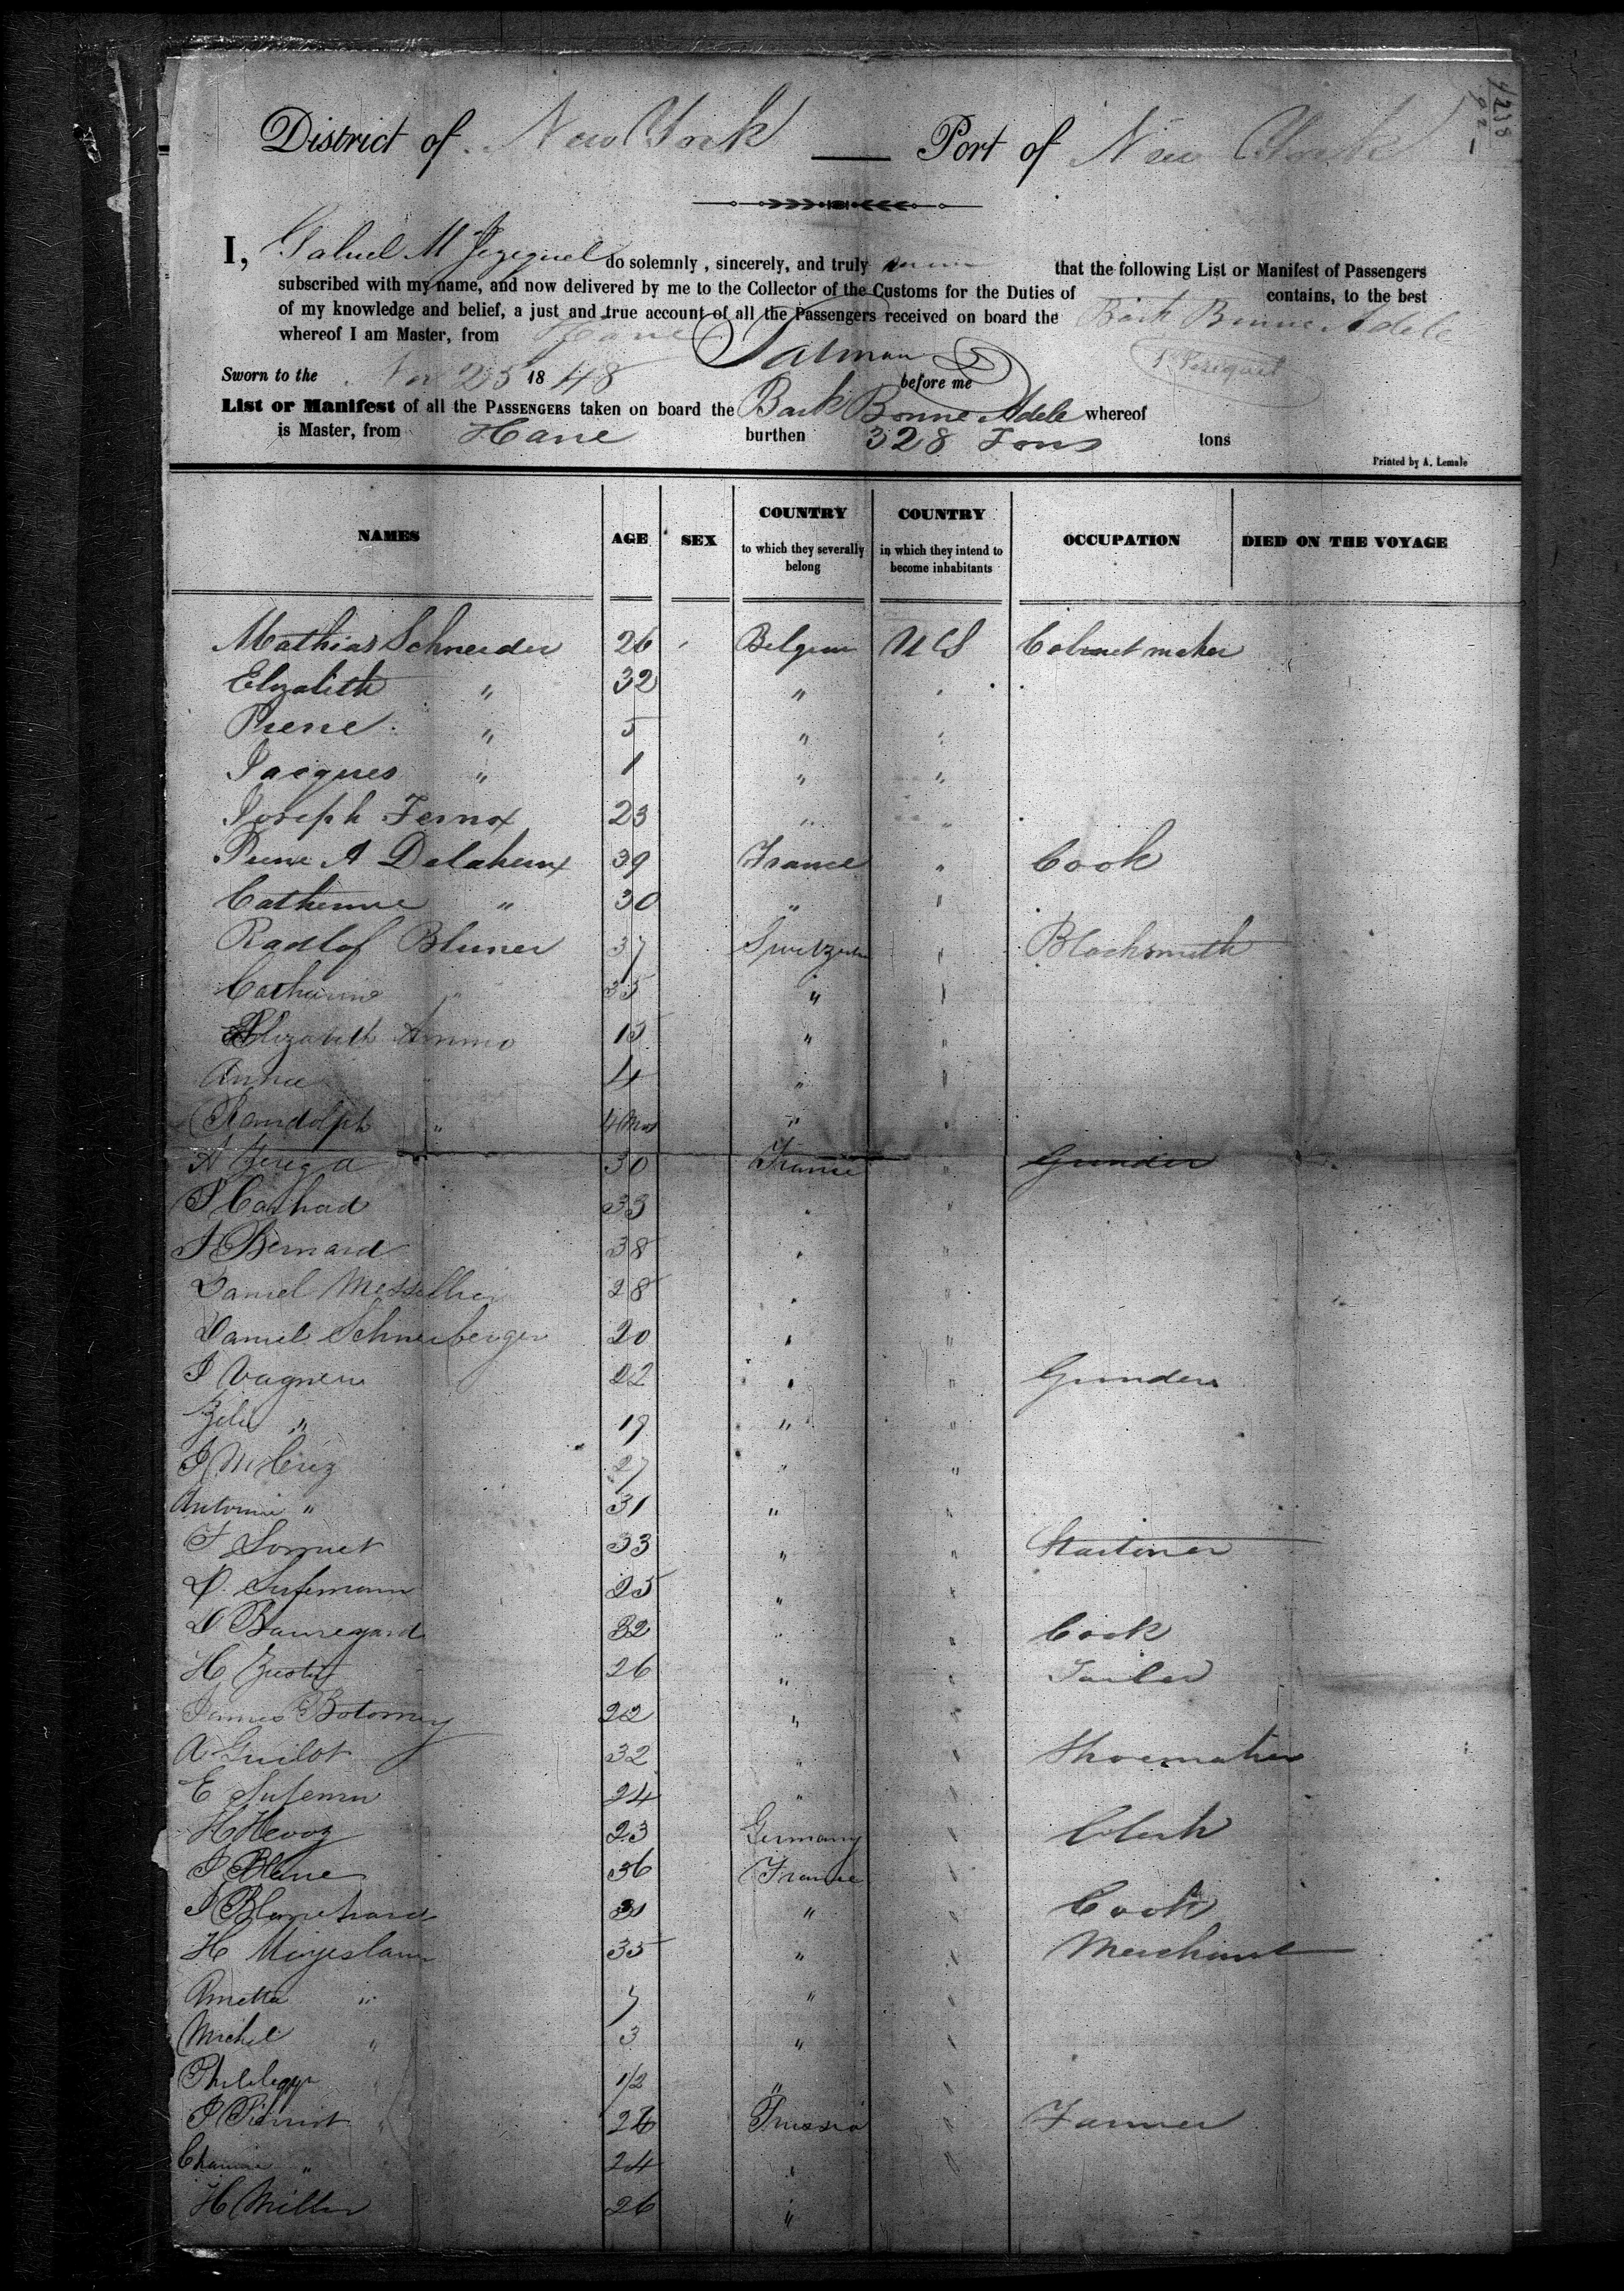 4238
District of New York — Port of New York
I, Gabriel M Jezequel do solemnly, sincerely, and truly swear that the following List or Manifest of Passengers
subscribed with my name, and now delivered by me to the Collector of the Customs for the Duties of contains, to the best
of my knowledge and belief, a just and true account of all the Passengers received on board the Bark Bonne Adele
whereof I am Master, from Havre
Sworn to the Nov 25 1848 before me
List or Manifest of all the PASSENGERS taken on board the Bark Bonne Adele whereof
is Master, from Havre burthen 328 Tons tons
Printed by A. Lemale
NAMES AGE SEX COUNTRY to which they severally belong COUNTRY in which they intend to become inhabitants OCCUPATION DIED ON THE VOYAGE
Mathias Schneider 26 Belgium U S Cabinet maker
Elizabeth " 32 " "
Pierre " 5 " "
Jacques " 1 " "
Joseph Fernox 23 " "
Pierre A Delaheux 39 France " Cook
Catherine " 30 " "
Radlof Blumer 37 Switzerln " Blacksmith
Catharine " 35 " "
Elizabeth 15 " "
Anna " 4 " "
Randolph " 4 Mos " "
A 30 France " Grinder
P Cachad 33 " "
J Bernard 38 " "
Daniel 28 " "
Daniel Schneeberger 20 " "
J Vagnen 22 " " Grinder
" 19 " "
J M 27 " "
Antoine " 31 " "
F Sornet 33 " "
25 " "
D Bauregard 32 " " Cook
H 26 " " Tailor
James Botomey 22 " "
A Guilot 32 " " Shoemaker
E 24 " "
H 23 Germany " Clerk
J Blane 36 France "
J Blanchard 31 " " Cook
H 35 " " Merchant
Annetta " 7 " "
Michel " 3 " "
Philelipp " 1/2 " "
J Pierriot 26 Prussia " Farmer
" 24 " "
H Miller 26 "